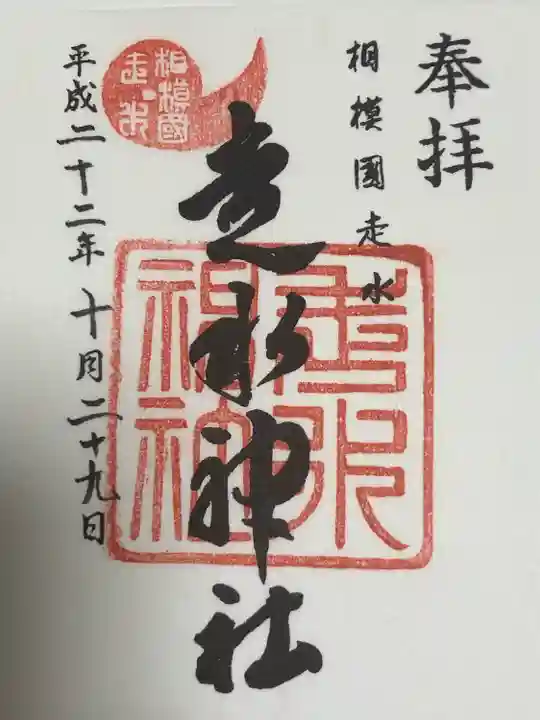 奉拝
相模國走水
走水神社
平成二十二年十月二十九日
相模國
走水
走水
神社